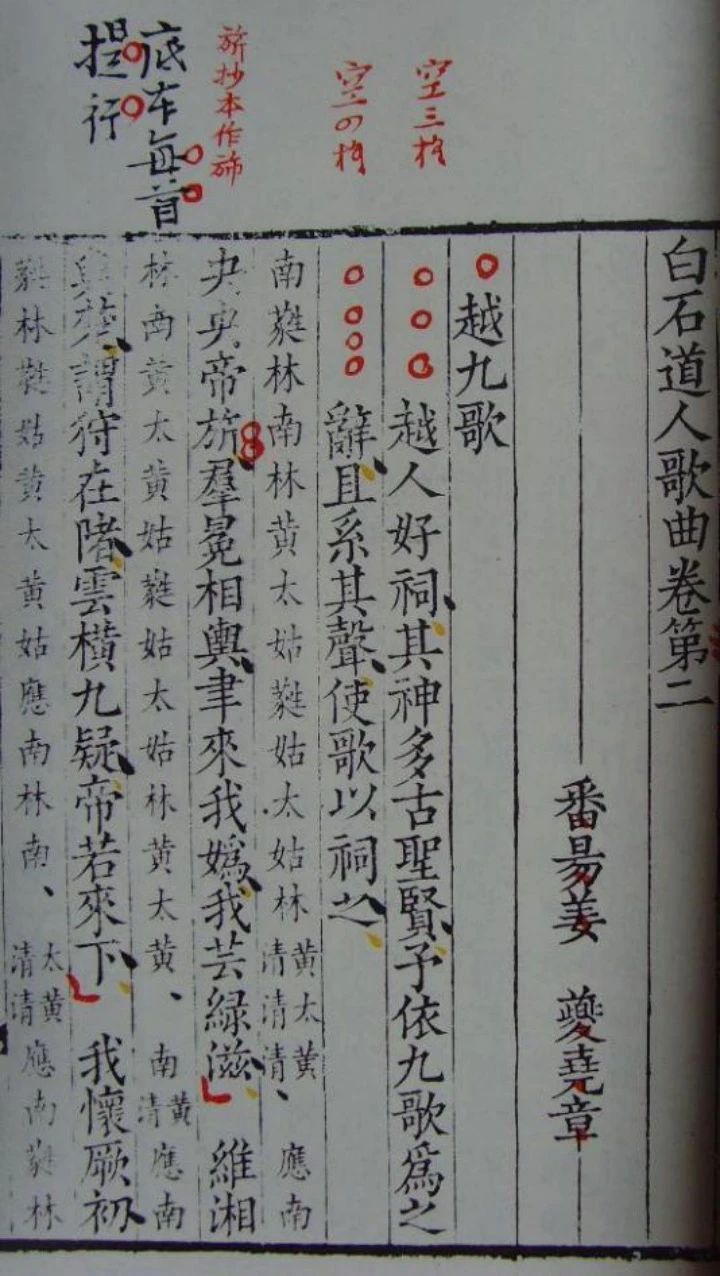 空三格
空四格
旂抄本作
底本每首
提行
白石道人歌曲卷第二
番昜姜　夔堯章
越九歌
越人好祠其神多古聖賢予依九歌爲之
辭且系其聲使歌以祠之
南蕤林南林黃太姑蕤姑太姑林黃清太清黃清、應南
央央帝旂羣冕相輿聿來我嬀我芸綠滋　維湘
林南黃太黃姑蕤姑太姑林黃太黃、南黃清應南
與楚謂狩在陼雲橫九疑帝若來下　我懷厥初
蕤林蕤姑黃太黃姑應南林南、太清黃清應南蕤林